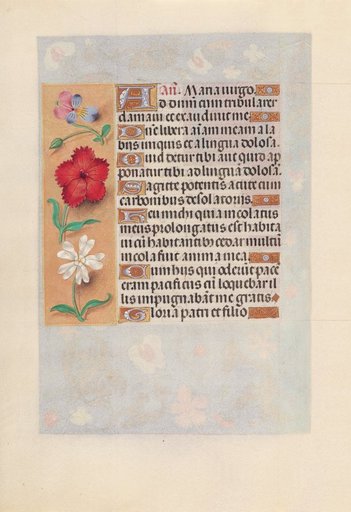 Añ. Maria uirgo.
Ad dñm cum tribularer
clamaui et exaudiuit me.
Dñe libera aīam meam a la
biis iniquis et a lingua dolosa.
Quid detur tibi aut quid ap
ponatur tibi ad linguā dolosā.
Sagitte potentis acute cum
carbonibus desolatoriis.
Heu michi quia incolatus
meus prolongatus est habita
ui cū habitantibus cedar multū
incola fuit anima mea.
Cum hiis qui oderūt pacē
eram pacificus cū loquebar il
lis impugnabāt me gratis
Gloria patri et filio